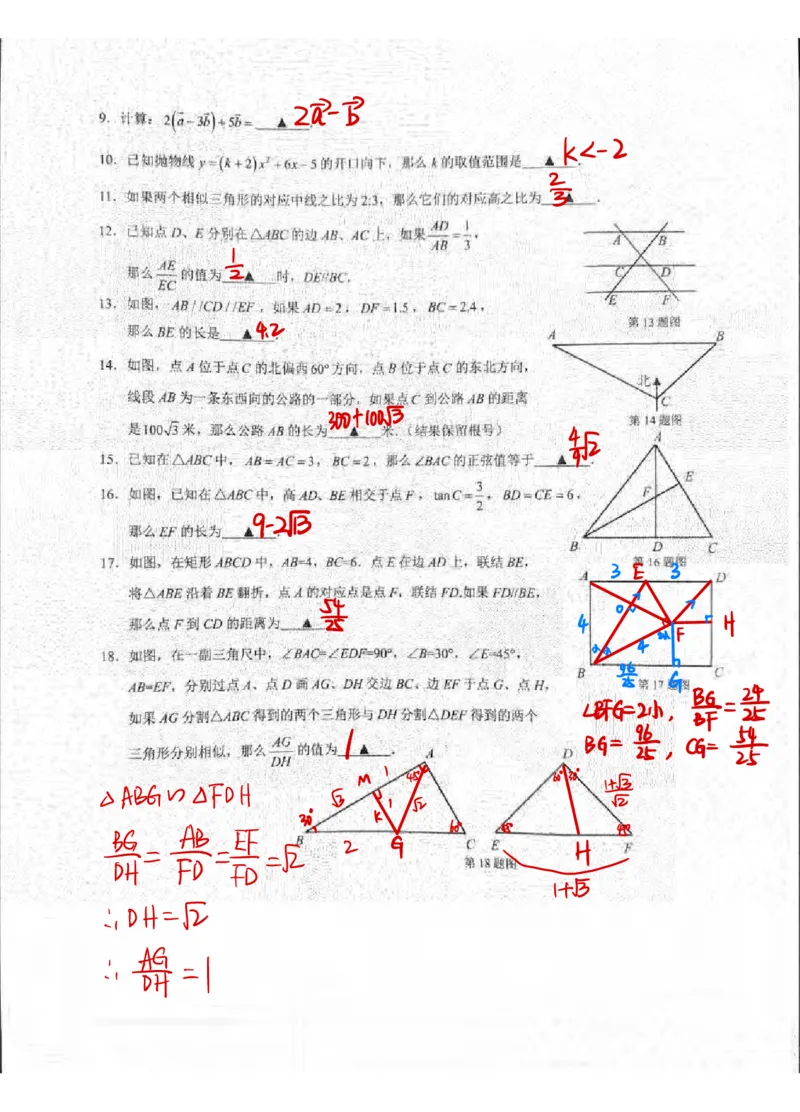 9. 计算：2(a⃗-3b⃗)+5b⃗=▲. 2a⃗-b⃗
10. 已知抛物线 y=(k+2)x²+6x-5的开口向下，那么k的取值范围是▲. k<-2
11. 如果两个相似三角形的对应中线之比为2:3，那么它们的对应高之比为▲. 2/3
12. 已知点D、E分别在△ABC的边AB、AC上，如果AD/AB=1/3，
那么AE/EC的值为▲时，DE//BC. 1/2
A B
C D
E F
第13题图
13. 如图，AB//CD//EF，如果AD=2，DF=1.5，BC=2.4，
那么BE的长是▲. 4.2
A B
北
C
第14题图
14. 如图，点A位于点C的北偏西60°方向，点B位于点C的东北方向，
线段AB为一条东西向的公路的一部分，如果点C到公路AB的距离
是100√3米，那么公路AB的长为▲米.（结果保留根号） 300+100√3
15. 已知在△ABC中，AB=AC=3，BC=2，那么∠BAC的正弦值等于▲. 4/9√2
16. 如图，已知在△ABC中，高AD、BE相交于点F，tanC=3/2，BD=CE=6，
那么EF的长为▲. 9-2√13
A
E
F
B D C
第16题图
17. 如图，在矩形ABCD中，AB=4，BC=6．点E在边AD上，联结BE，
将△ABE沿着BE翻折，点A的对应点是点F，联结FD.如果FD//BE，
那么点F到CD的距离为▲. 54/25
A 3 E 3 D
O
4 4 F H
B 96/25 G C
第17题图
∠BFG=2α, BG/BF=24/25
BG=96/25, CG=54/25
18. 如图，在一副三角尺中，∠BAC=∠EDF=90°，∠B=30°，∠E=45°，
AB=EF，分别过点A、点D画AG、DH交边BC、边EF于点G、点H，
如果AG分割△ABC得到的两个三角形与DH分割△DEF得到的两个
三角形分别相似，那么AG/DH的值为▲. 1
A
M 1 45°
√3 1 √2
30° K 60°
B 2 G C
D
1+√3/√2
45° 45°
E H F
1+√3
第18题图
△ABG∽△FDH
BG/DH=AB/FD=EF/FD=√2
∴DH=√2
∴AG/DH=1